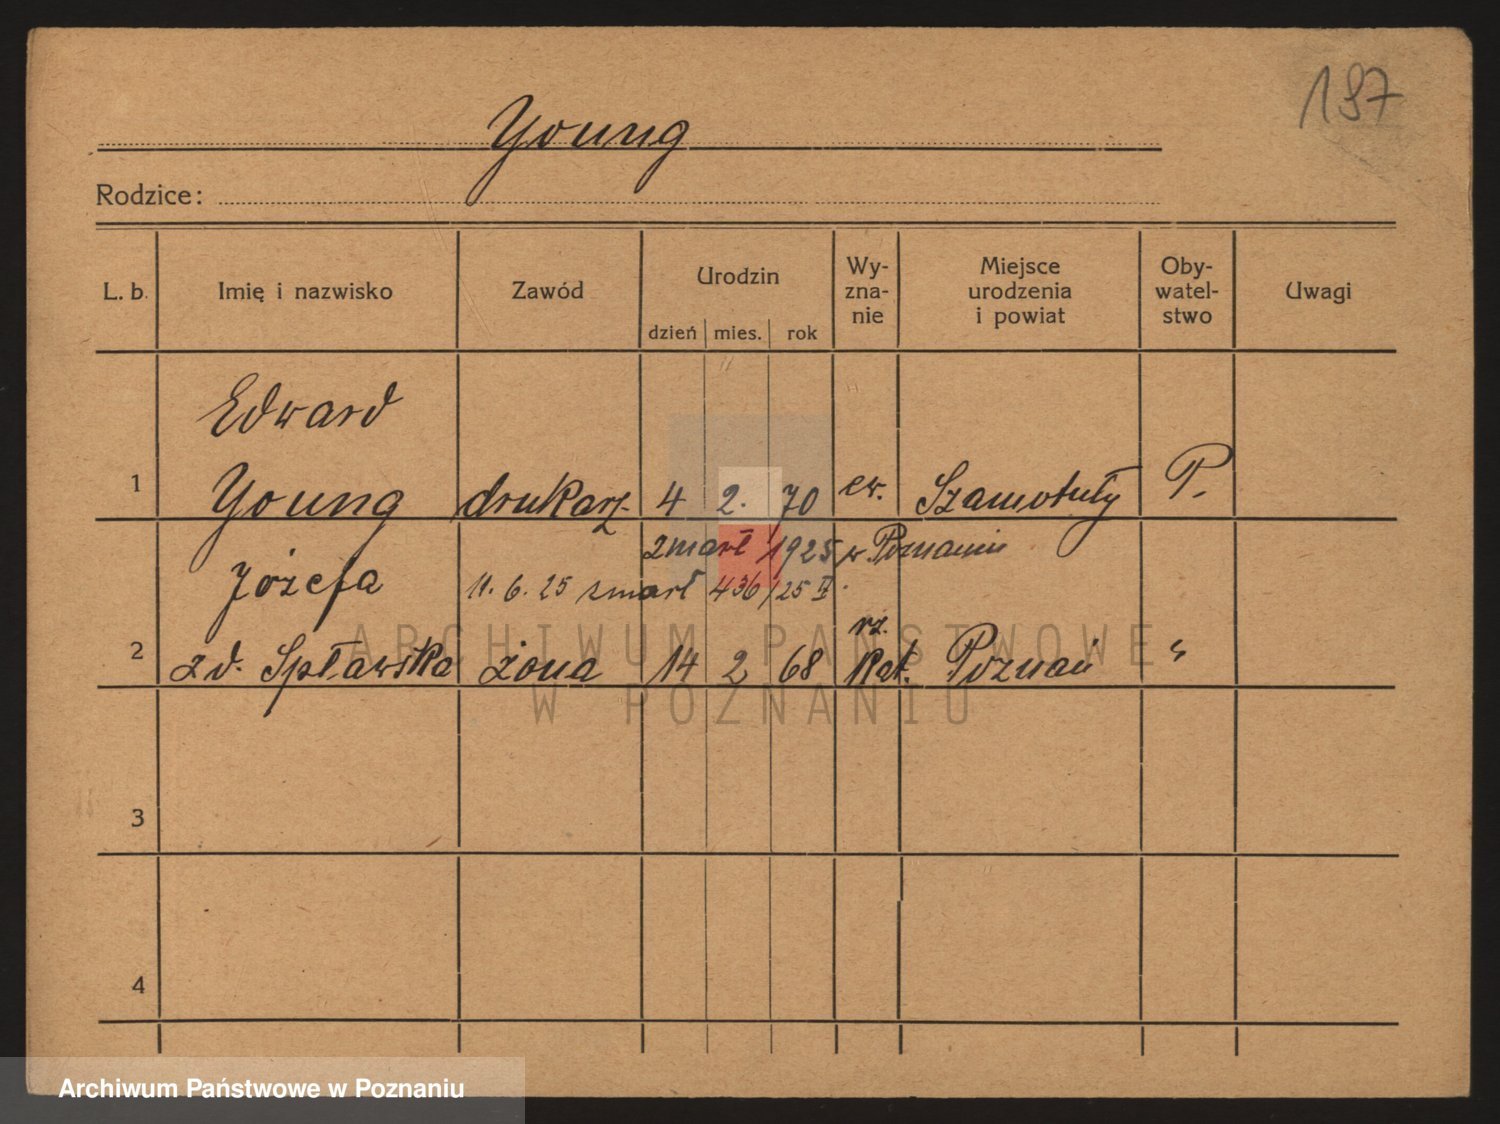 197
Young
Rodzice:
L. b. Imię i nazwisko Zawód Urodzin dzień mies. rok Wy-zna-nie Miejsce urodzenia i powiat Oby-watel-stwo Uwagi
Edward
1 Young drukarz 4 2. 70 ew. Szamotuły P.
zmarł 1925 w Poznaniu
Józefa 11. 6. 25 zmarł 436/25 II.
rz.
2 zd. Spławska żona 14 2 68 kat. Poznań "
3
4
ARCHIWUM PAŃSTWOWE
W POZNANIU
Archiwum Państwowe w Poznaniu